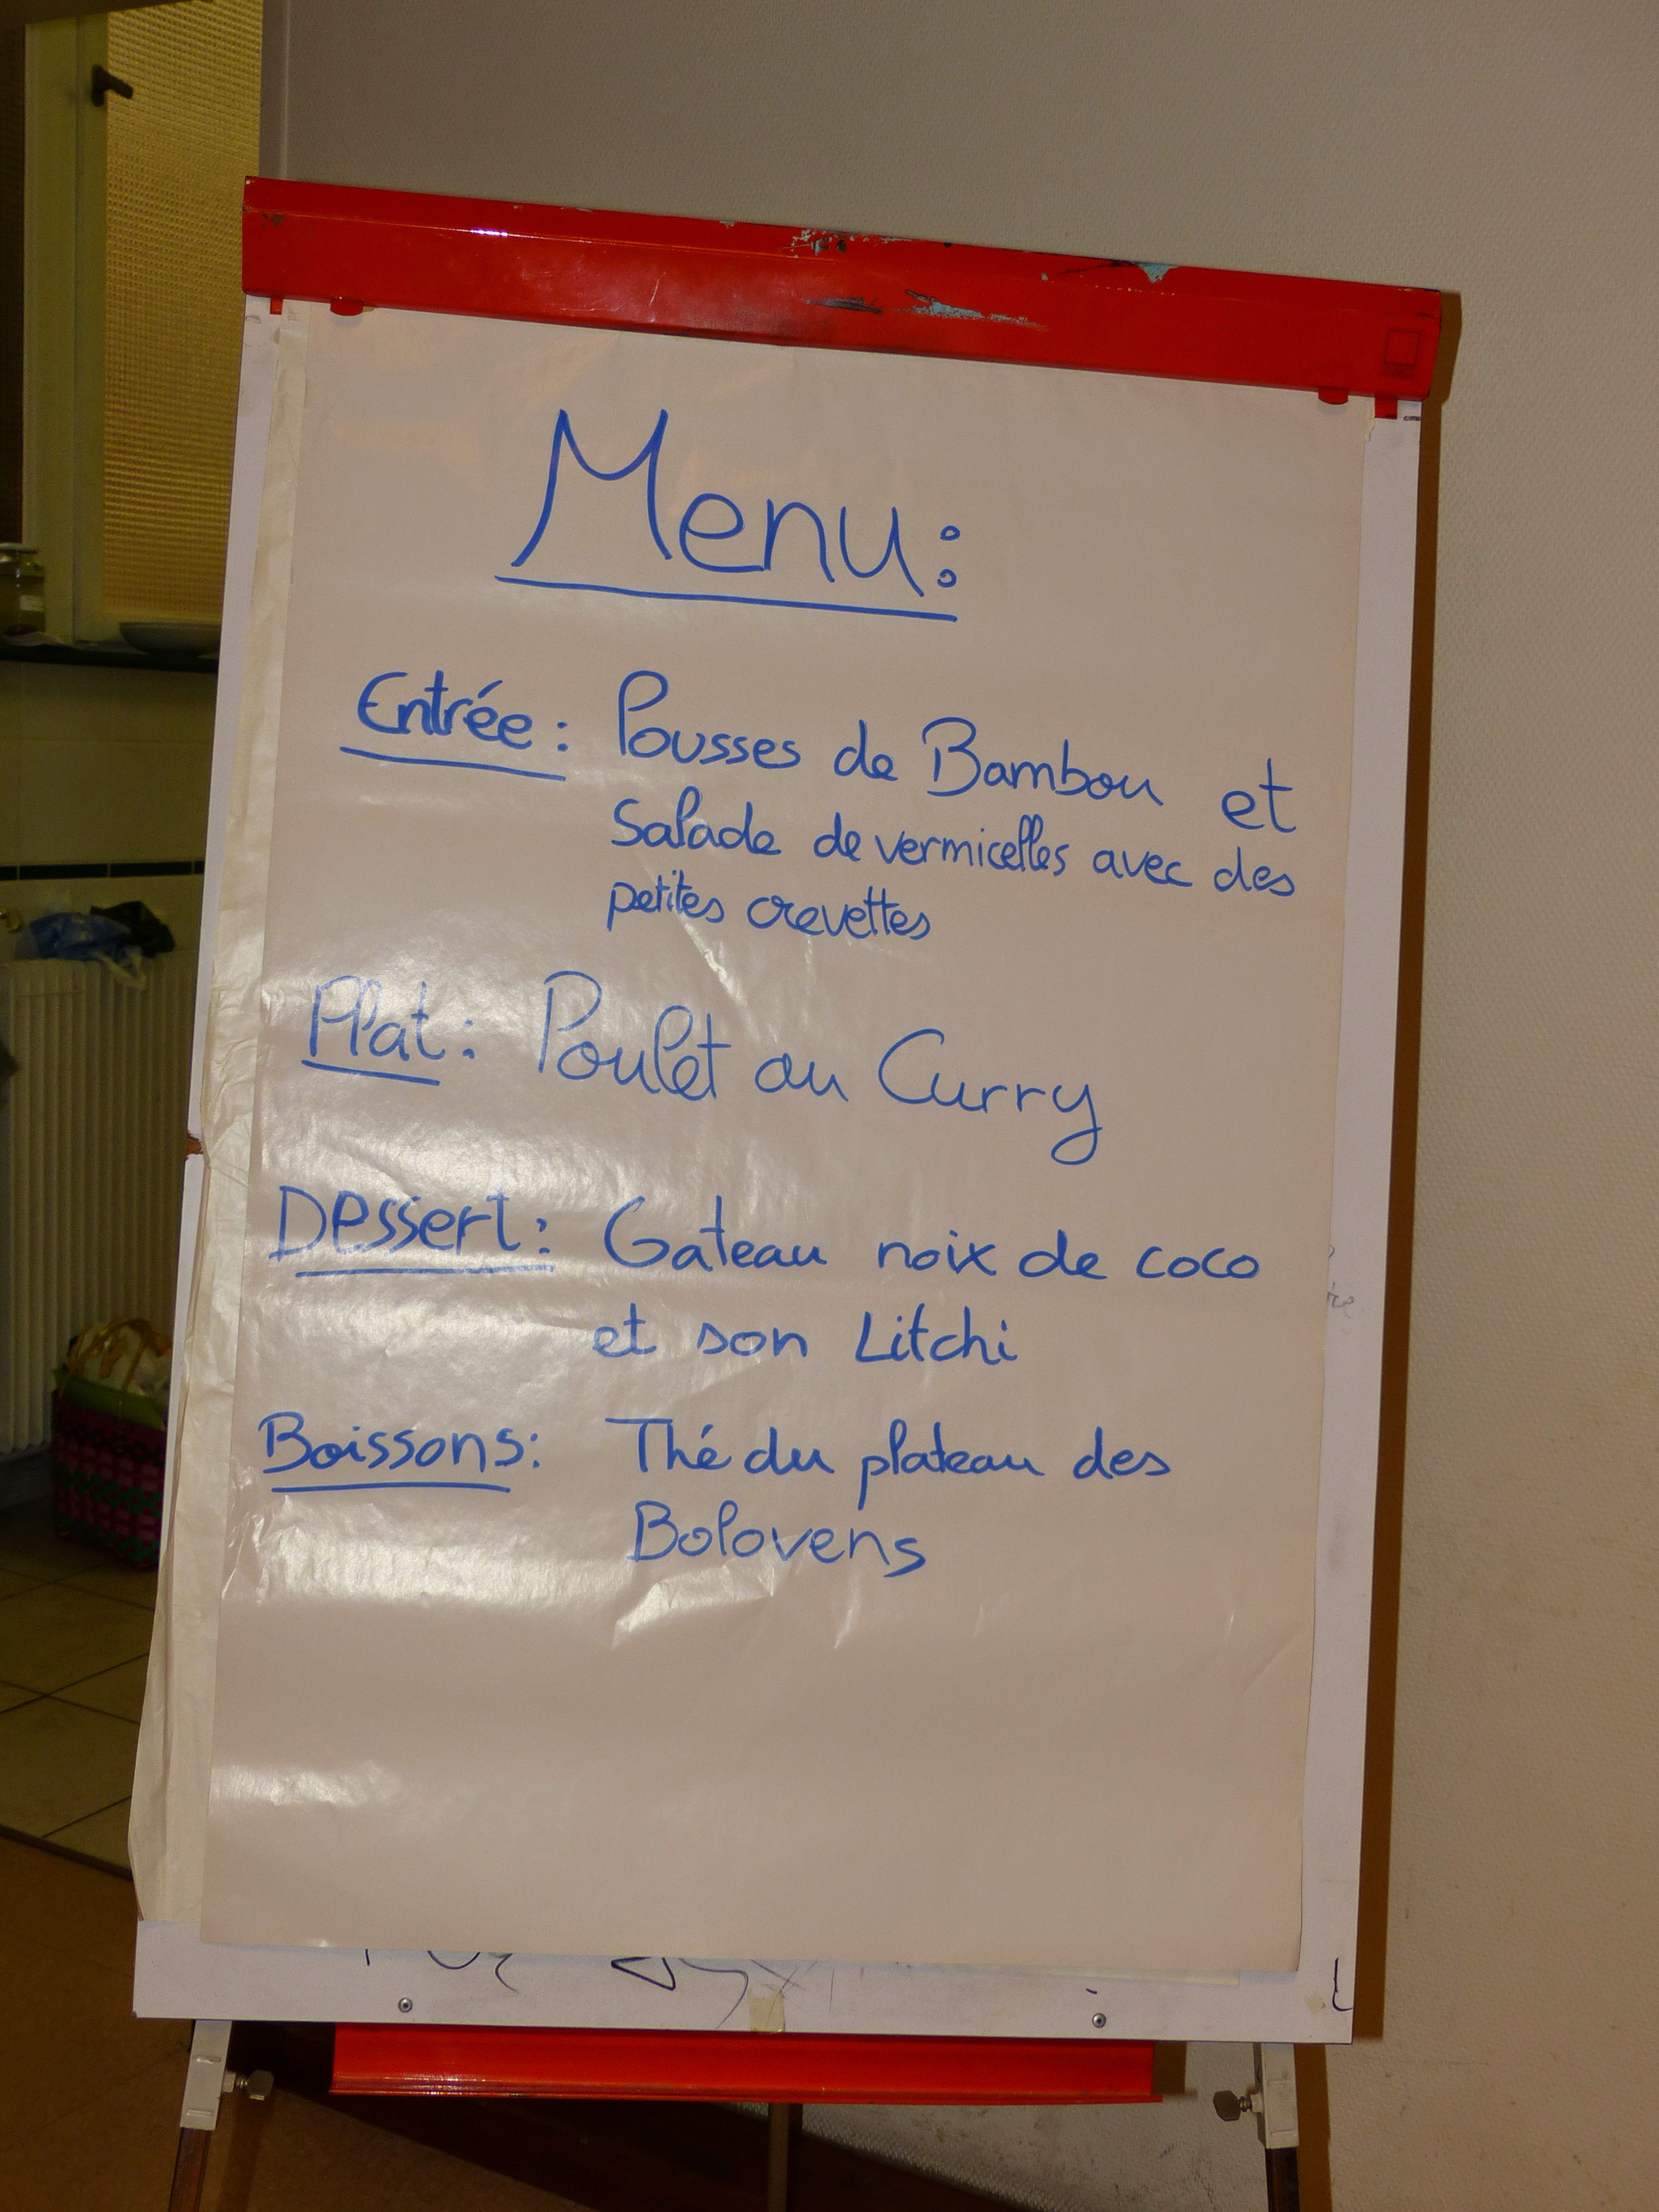 Menu:
Entrée: Pousses de Bambou et
Salade de vermicelles avec des
petites crevettes
Plat: Poulet au Curry
Dessert: Gateau noix de coco
et son Litchi
Boissons: Thé du plateau des
Bolovens